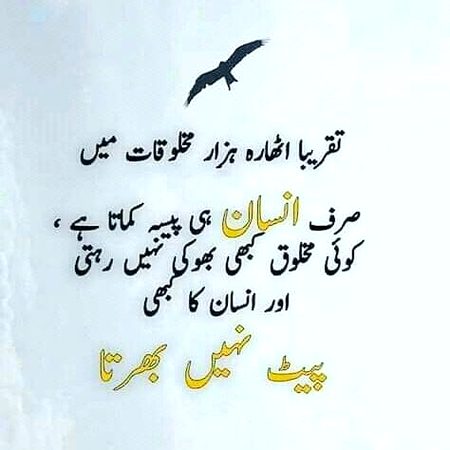 تقریبا اٹھارہ ہزار مخلوقات میں
صرف انسان ہی پیسہ کماتا ہے ،
کوئی مخلوق کبھی بھوکی نہیں رہتی
اور انسان کا کبھی
پیٹ نہیں بھرتا